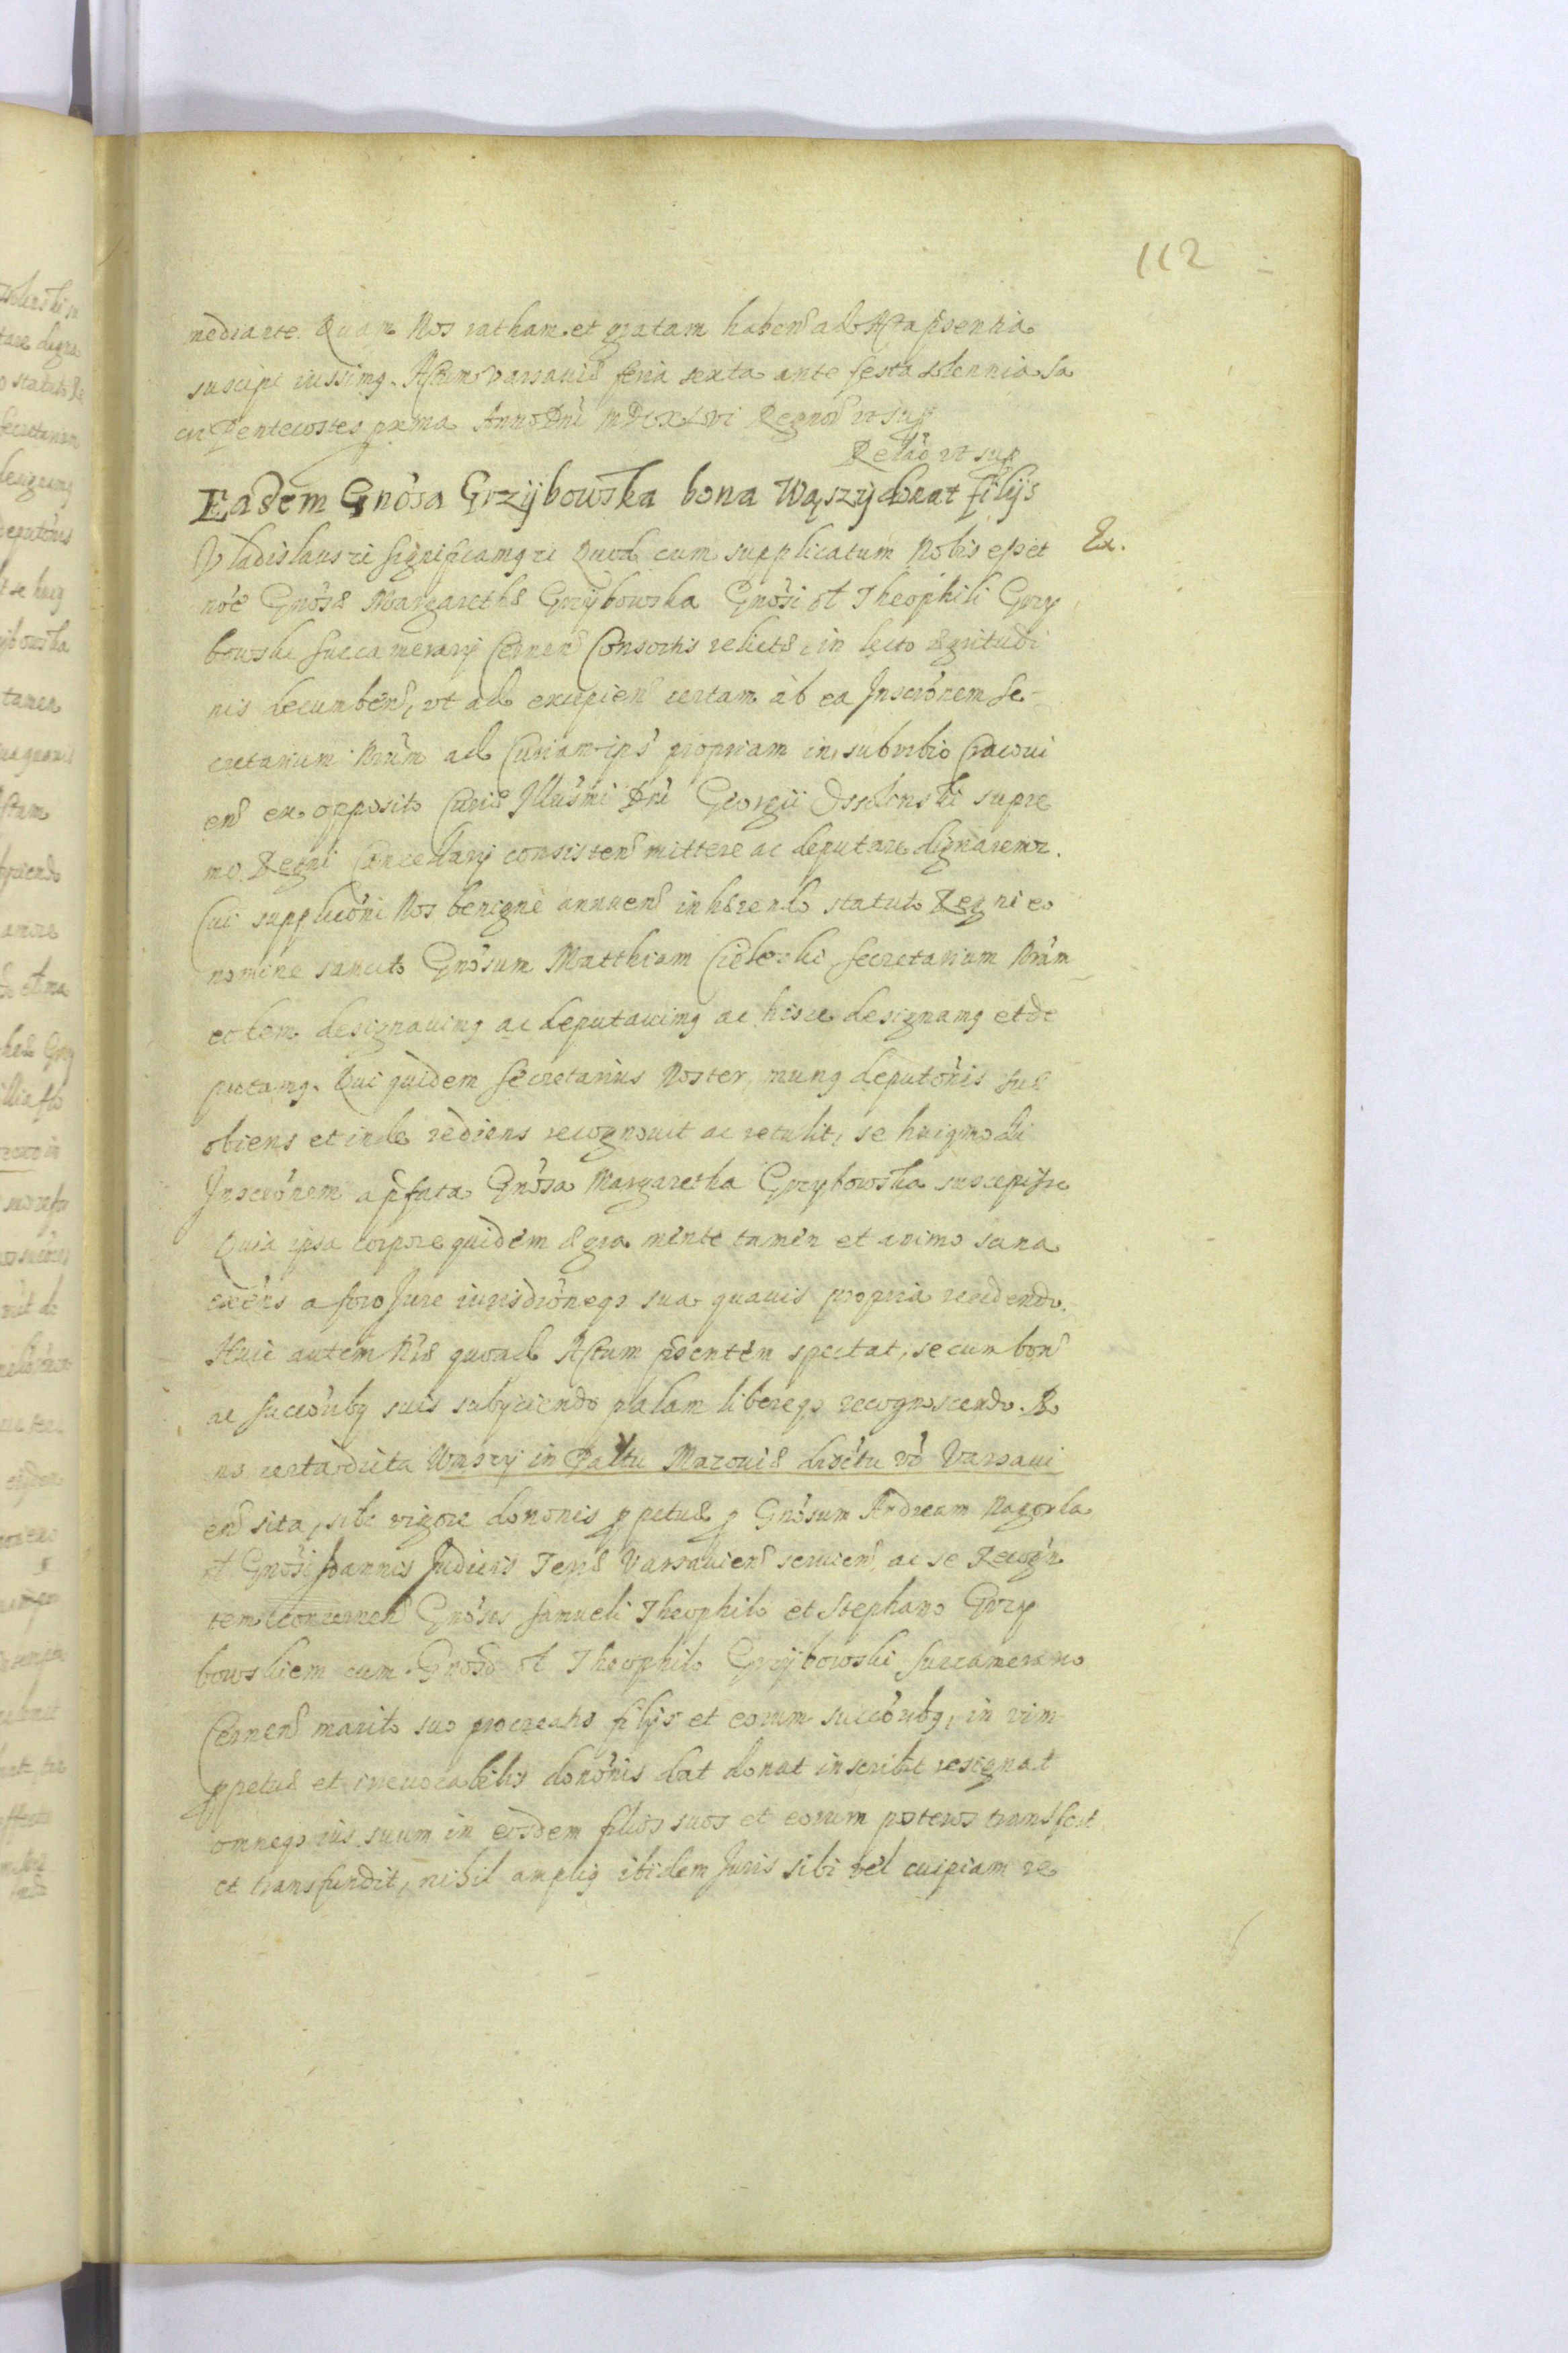 112
mediante. Quam Nos ratham et gratam haben̄ ad Acta p̄sentia
suscipi iussimq. Actum Varsaviæ feria sexta ante festa solennia Sa
cra Pentecostes proxima Anno Dn̄i MDCXLVI Regnor̄ ut sup̄
Relaō ut sup̄
Eadem Gnōsa Grzÿbowska bona Wąszÿ donat filÿs
Ex.
Vladislaus rc̄ significamq rc̄ Quod cum supplicatum Nobis esset
nōe Gnōsæ Margarethæ Grzÿbowska Gnōsi ol Theophili Grzy
bowski Succamerarÿ Cernen̄ Consortis relictæ, in lecto ægritudi
nis decumben̄, ut ad excipien̄ certam ab ea Inscrōnem Se-
cretarium Nrūm ad Curiam ips̄ propriam in suburbio Cracovi
en̄ ex opposito Curiæ Illus̄mi Dn̄i Georgii Ossolinski supre
mo Regni Cancellarÿ consisten̄ mittere ac deputare dignaremr.
Cui supplicōni Nos benignè annuen̄ inhærendo statuto Regni eo
nomine sancito Gnōsum Matthiam Cieleski Secretarium Nrūm
eodem designavimq ac deputavimq ac hisce designamq et de
putamq. Qui quidem Secretarius Noster, munq deputōnis suæ
obiens et inde rediens recognovit ac retulit, se huiqmodi
Inscrōnem a p̄fata Gnōsa Margaretha Grzybowska suscepisse
Quia ipsa corpore quidem ægra mente tamen et animo sana
exēns a foro Jure iurisdrōneqꝫ sua quavis propria recedendo.
Huic autem Nr̄æ quoad Actum p̄sentem spectat, se cum bon̄
ac succōribq suis subÿciendo palam libereqꝫ recognoscendo. Bo
na certa dicta Wąszy in Palttu Mazoviæ distctu vō Varsavi
en̄ sita, sibi vigore donōnis ꝑpetuæ ꝑ Gnōsum Andream Nagorka
ol Gnōsi Joannis Judicis Terræ Varsavien̄ servien̄, ac se Recogn̄
tem concernen̄ Gnōsis Samueli Theophilo et Stephano Grzy
bowskiem cum Gnōso ol Theophilo Grzÿbowski Succamerario
Cernen̄ marito suo procreatis filÿs et eorum succōribq, in vim
ꝑpetuæ et irrevocabilis donōnis dat donat inscribit resignat
omneqꝫ ius suum in eosdem filios suos et eorum posteros transfert
et transfundit, nihil ampliq ibidem Juris sibi vel cuipiam re